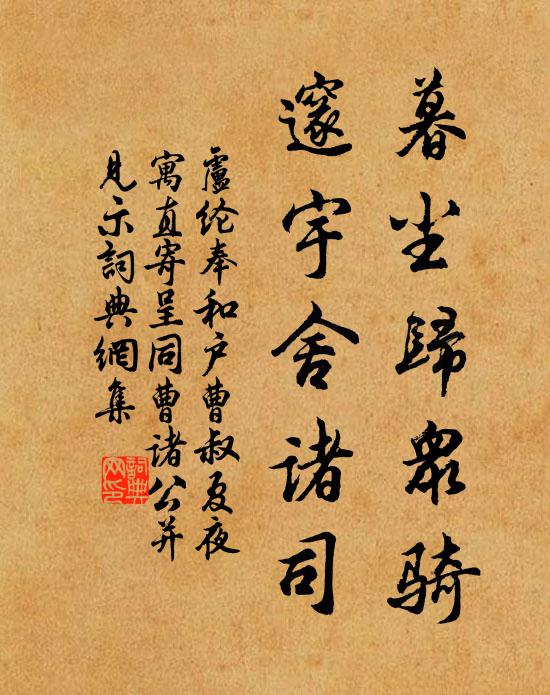 暮尘歸眾骑
邃宇舍诸司
盧纶奉和户曹叔夏夜
寓直寄呈同曹诸公并
見示詞典網集
詞典网印